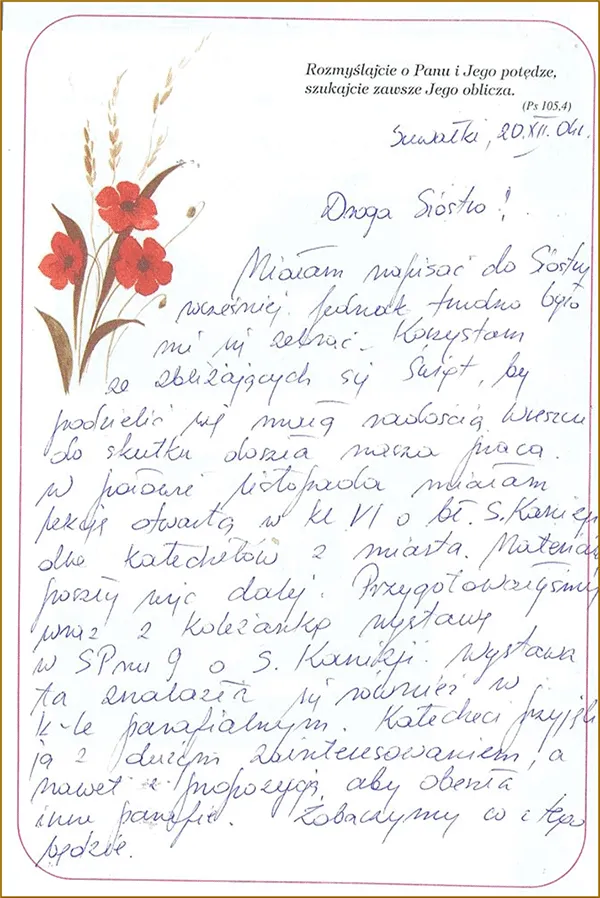 Rozmyślajcie o Panu i Jego potędze,
szukajcie zawsze Jego oblicza.
(Ps 105,4)
Suwałki, 20.XII.04r.
Droga Siostro!
Miałam napisać do Siostry
wcześniej jednak trudno było
mi się zebrać. Korzystam
ze zbliżających się Świąt, by
podzielić się moją radością. Wreszcie
do skutku doszła nasza praca.
W połowie listopada miałam
lekcję otwartą w kl VI o bł. S. Kanizji
dla katechetów z miasta. Materiały
poszły więc dalej. Przygotowałyśmy
wraz z koleżanką wystawę
w SP nr 9 o S. Kanizji. Wystawa
ta znalazła się również w
k-le parafialnym. Katecheci przyjęli
ją z dużym zainteresowaniem, a
nawet z propozycją, aby obeszła
inne parafie. Zobaczymy co z tego
będzie.